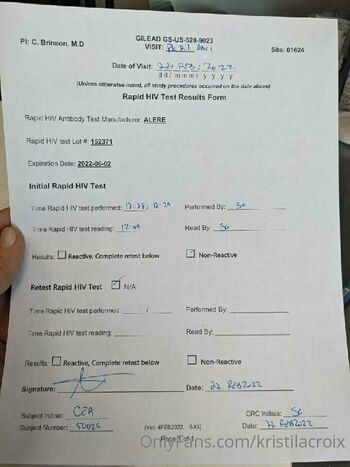 GILEAD GS-US-528-9023
PI: C. Brinson, M.D
VISIT:
Site: 01624
Date of Visit: 22 / FEB / 2022
dd / mmm / y y y y
(Unless otherwise noted, all study procedures occurred on the date above)
Rapid HIV Test Results Form
Rapid HIV Antibody Test Manufacturer ALERE
Rapid HIV test Lot #: 152371
Expiration Date: 2022-06-02
Initial Rapid HIV Test
Time Rapid HIV test performed: Performed By:
Time Rapid HIV test reading: Read By:
Results: Reactive, Complete retest below Non-Reactive
Retest Rapid HIV Test N/A
Time Rapid HIV test performed / Performed By:
Time Rapid HIV test reading: Read By:
Results: Reactive, Complete retest below Non-Reactive
Signature: Date: 22 FEB2022
Subject Initials: CRC Initials:
Subject Number: (Ver. 4FEB2022 Date: 22 FEB2022
Page 1 of 1
OnlyFans.com/kristilacroix